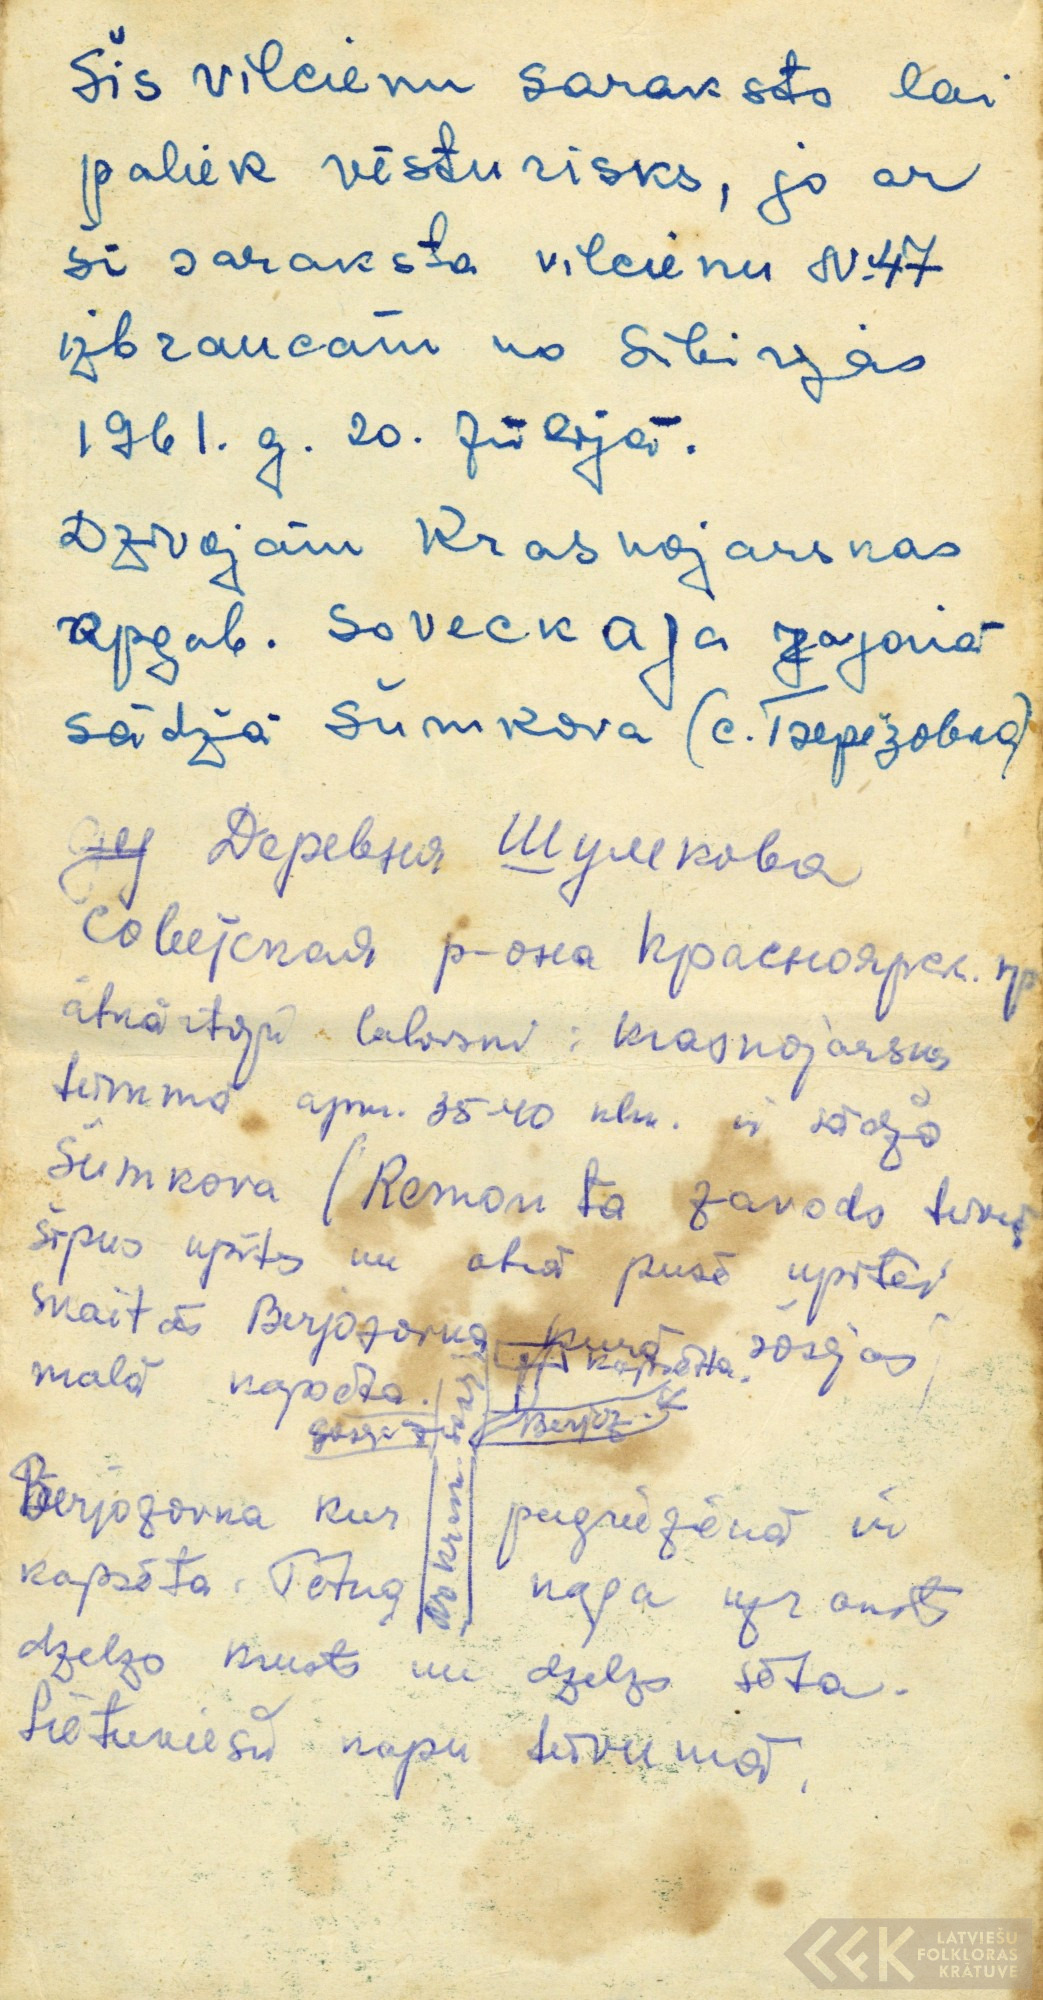 Šis vilcienu saraksts lai
paliek vēsturisks, jo ar
šī saraksta vilcienu N-47
izbraucām no Sibirijas
1961. g. 20. jūlijā.
Dzīvojām Krasnojarskas
apgab. Soveckaja rajonā
sādžā Šumkova (с. Берёзовка)
Деревня Шумкова
Советская р-она Красноярск. кр
atkārtoju : Krasnojarskas
tuvumā apm. 35-40 klm. ir sādža
Šumkova (Remonta zavods tuvu
šipus upīts un otrā pusē upītei
skaitās Berjozovka kurā šosejas
malā kapsēta.
kapsēta.
Berjoz.
šoseja
no Krasn.
Berjozovka kur pagriezienā ir
kapsēta. Tētuņa uzrakts
dzelzs krusts un dzelzs sēta.
Lietuviešu kapu tuvumā.
LATVIEŠU
FOLKLORAS
KRĀTUVE